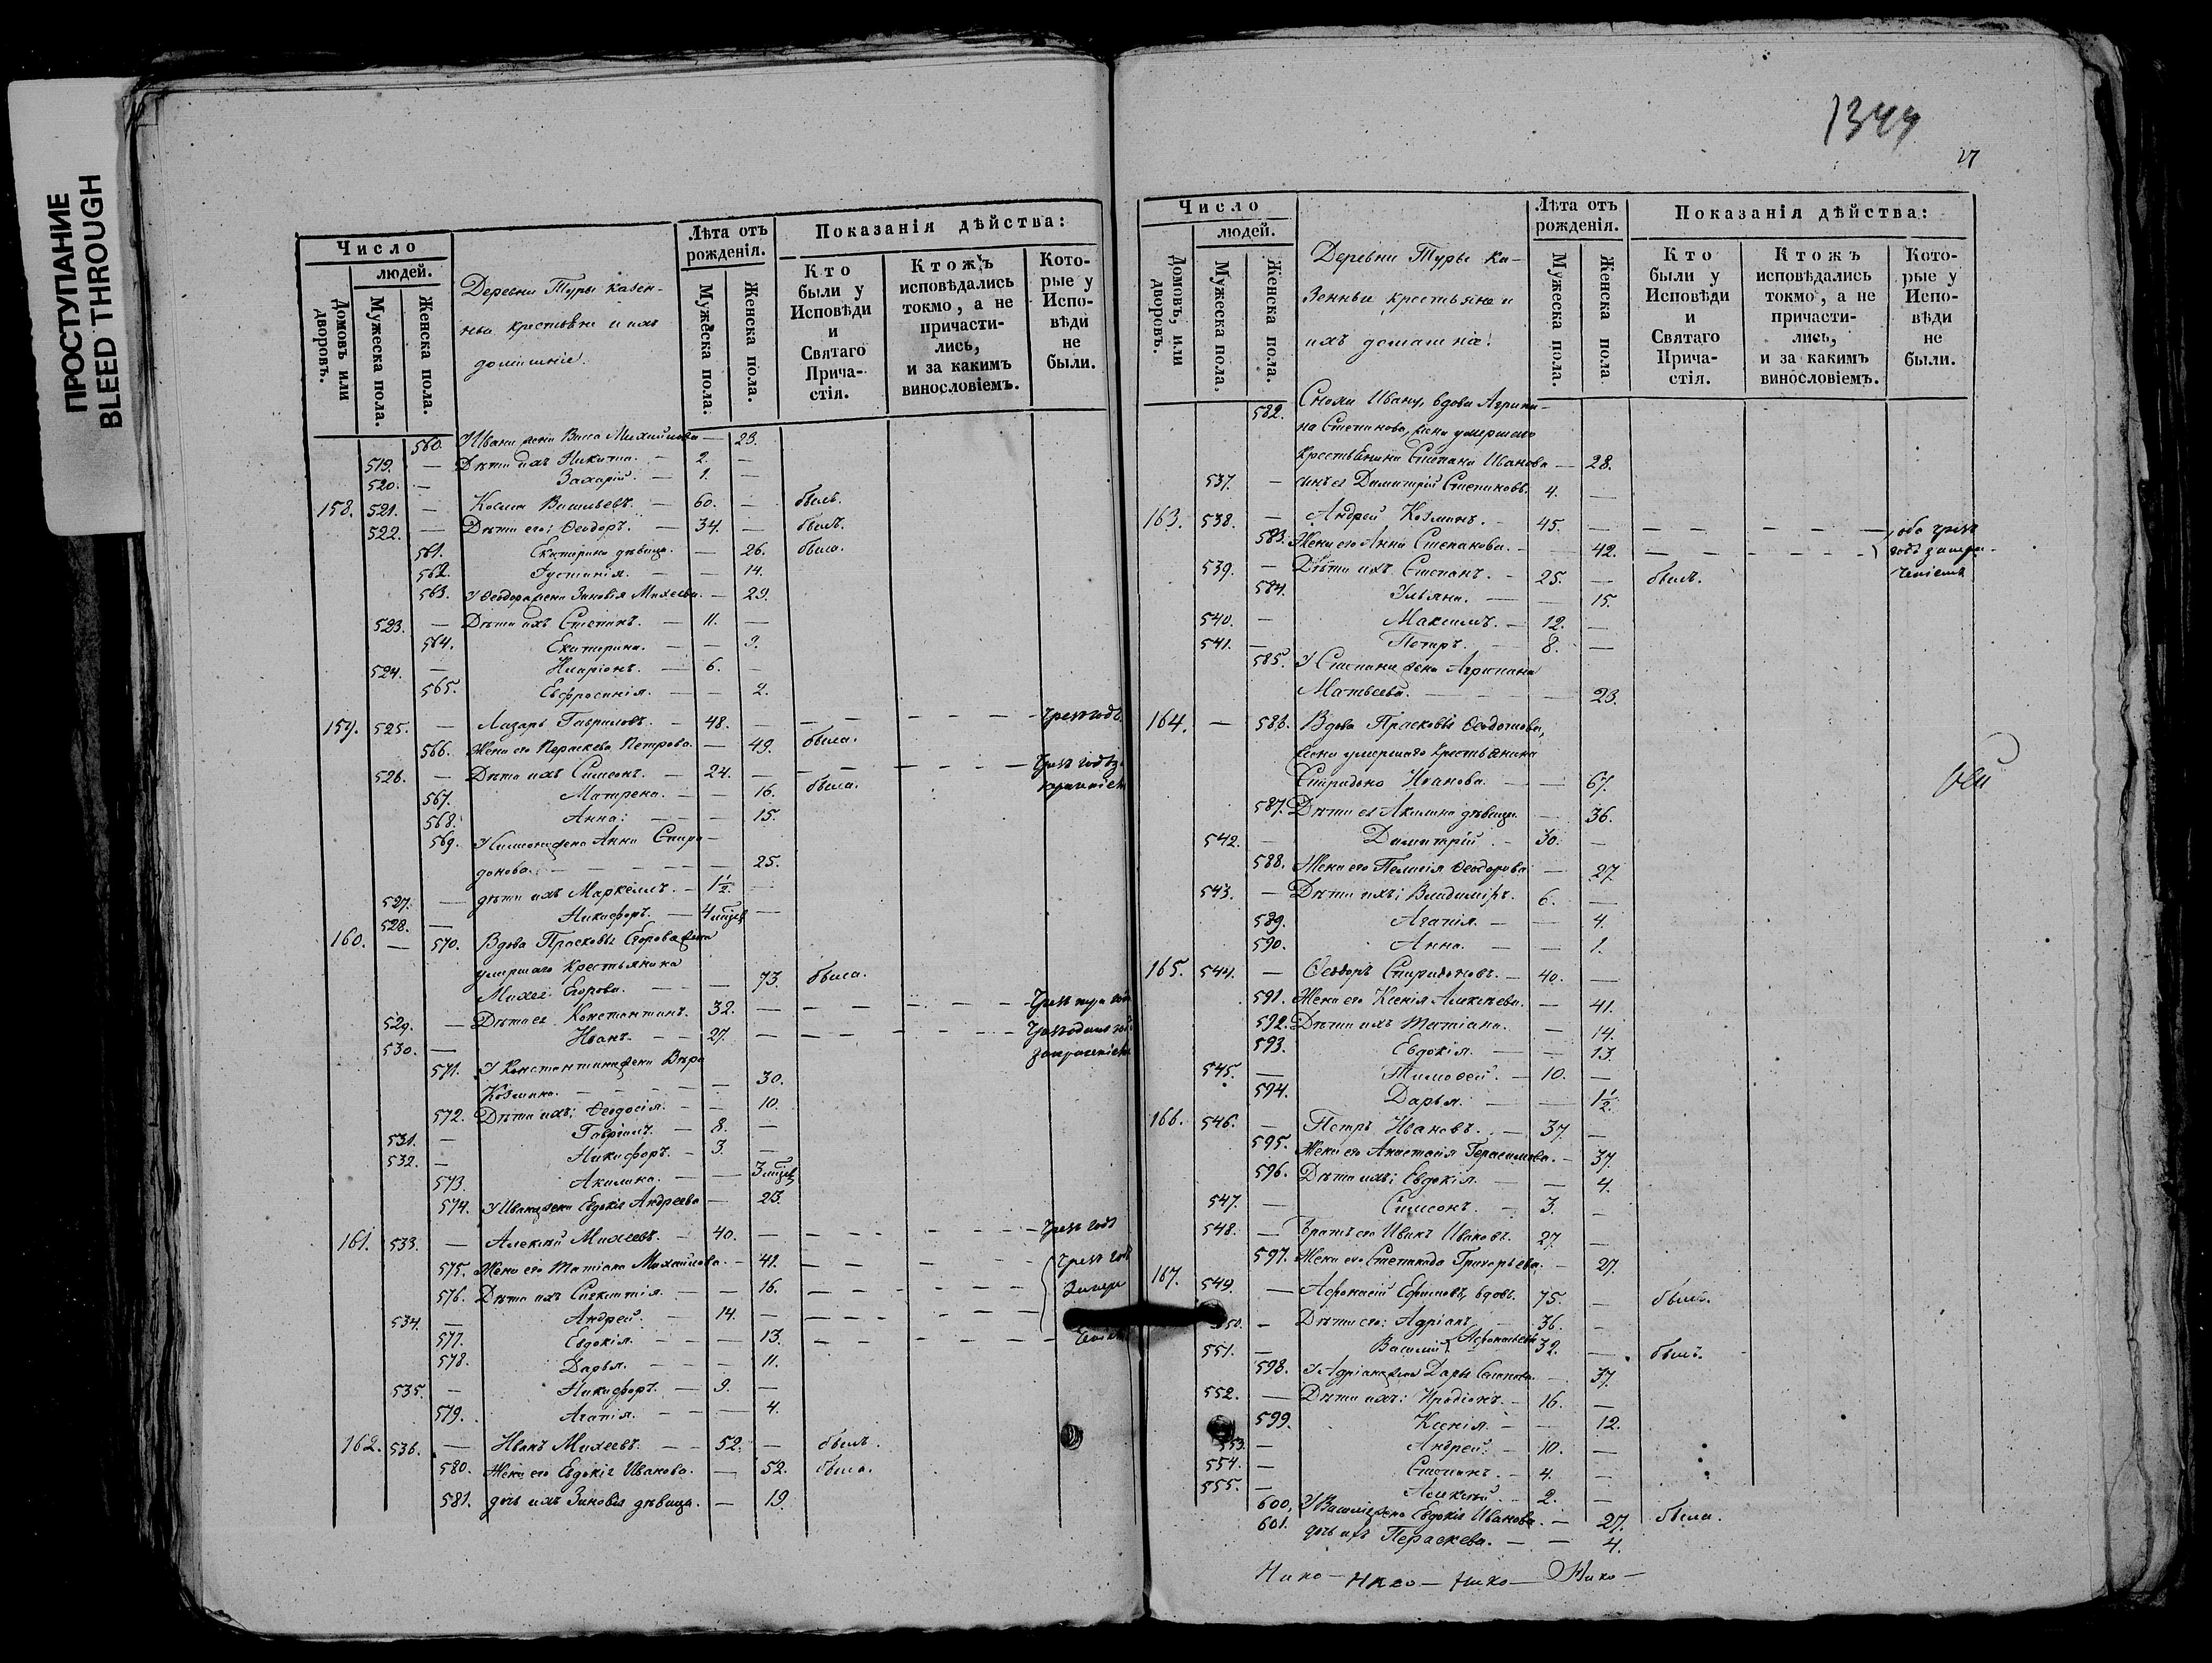 ПРОСТУПАНИЕ
BLEED THROUGH
Число
людей.
Домовъ или дворовъ.
Мужеска пола.
Женска пола.
Деревни Туры казен-
ныи крестьяне и ихъ
домашніе.
Лѣта отъ рожденія.
Мужеска пола.
Женска пола.
Показанія дѣйства:
Кто были у Исповѣди и Святаго Прича-стія.
Ктожъ исповѣдались токмо, а не причасти-лись, и за какимъ винословіемъ.
Кото-рые у Испо-вѣди не были.
560. У Ивана жена Васса Михайлова — 23.
519. — Дѣти ихъ Никита. — 2. —
520. — Захарій. — 1. —
158. 521. — Косма Васильевъ. — 60. — былъ.
522. — Дѣти его: Ѳеодоръ. — 34. — былъ.
561. Екатерина дѣвица. — 26. была.
562. Іустинія. — — 14.
563. У Ѳеодора жена Зиновія Михеева. — 29.
523. — Дѣти ихъ Стефанъ. — 11. —
564. Екатерина. — — 9.
524. — Иларіонъ. — 6. —
565. Евфросинія. — — 2.
159. 525. — Лазарь Гавриловъ. — 48. — — — — — — чрезъ годъ.
566. Жена его Параскева Петрова. — 49. была.
526. — Дѣти ихъ Симеонъ. — 24. — — — — — — чрезъ годъ
567. Матрена. — — 16. была.
568. Анна: — — 15.
569. У Симеона жена Анна Спири-
донова. — — — — — 25.
527. — дѣти ихъ Маркеллъ. — 1½. —
528. — Никифоръ. — 4 мѣсяц —
160. — 570. Вдова Прасковья Егорова жена
умершаго крестьянина
Михея Егорова. — — — 73. была.
529. — Дѣти ея Константинъ. 32. — — — — — чрезъ
530. — Иванъ. — — 27. — — — — — чрезъ
571. У Константина жена Вѣра
Козмина. — — — — — 30.
572. Дѣти ихъ: Ѳеодосія. — — 10.
531. — Гавріилъ. — 8. —
532. — Никифоръ. — 3. —
573. Акилина. — — 3 мѣсяц
574. У Ивана жена Евдокія Андреева — 23.
161. 533. — Алексѣй Михеевъ. — 40. — — — — — чрезъ годъ
575. Жена его Татіана Михайлова. — 41. — — — — чрезъ годъ
576. Дѣти ихъ Синклитія. — — 16. — — — —
534. — Андрей. — 14. — — — — —
577. Евдокія. — — 13. — — — — —
578. Дарья. — — — 11.
535. — Никифоръ. — 9. —
579. Агапія. — — 4.
162. 536. — Иванъ Михеевъ. — — 52. — былъ.
580. Жена его Евдокія Иванова. — 52. была.
581. дочь ихъ Зиновія дѣвица. — 19.
1344
27
Число
людей.
Домовъ, или дворовъ.
Мужеска пола.
Женска пола.
Деревни Туры ка-
зенныи крестьяне и
ихъ домашніе.
Лѣта отъ рожденія.
Мужеска пола.
Женска пола
Показанія дѣйства:
Кто были у Исповѣди и Святаго Прича-стія.
Ктожъ исповѣдались токмо, а не причасти-лись, и за какимъ винословіемъ.
Кото-рые у Испо-вѣди не были.
582. Сноха Ивану, вдова Агрипи-
на Степанова, жена умершаго
крестьянина Стефана Иванова — 28.
537. — сынъ ея Димитрій Степановъ. 4. —
163. 538. — Андрей Козминъ. — 45. — — — — — — оба чрезъ
583. Жена его Анна Степанова. — — 42. — — — — — годъ
539. — Дѣти ихъ Степанъ. — 25. — былъ.
584. Ульяна. — — 15.
540. — Максимъ. — 12. —
541. — Петръ. — 8. —
585. У Степана жена Агрипина
Матвеева. — — — — 23.
164. — 586. Вдова Прасковья Ѳедотова,
жена умершаго крестьянина
Спиридона Иванова. — — 67.
587. Дѣти ея Акилина дѣвица. — 36.
542. — Димитрій. — 30. —
588. Жена его Пелагія Ѳеодорова — 27.
543. — Дѣти ихъ: Владиміръ. 6. —
589. Агапія. — — 4.
590. Анна. — — 1.
165. 544. — Ѳеодоръ Спиридоновъ. — 40. —
591. Жена его Ксенія Алексѣева. — 41.
592. Дѣти ихъ Татіана. — 14.
593. Евдокія. — — 13.
545. — Тимоѳей. — 10. —
594. Дарья. — — 1½.
166. 546. — Петръ Ивановъ. — 37. —
595. Жена его Анастасія Герасимова. — 37.
596. Дѣти ихъ: Евдокія. — — 4.
547. — Симеонъ. — 3. —
548. — Братъ его Иванъ Ивановъ. 27. —
597. Жена его Степанида Григорьева. — 27.
167. 549. — Афонасій Ефимовъ, вдовъ. 75. — былъ.
550. — Дѣти его: Адріанъ — 36. —
551. — Василій Афонасьевы 32. — былъ.
598. У Адріана жена Дарья Семенова. — 37.
552. — Дѣти ихъ: Иродіонъ. — 16. —
599. Ксенія. — — 12.
553. — Андрей. — 10. —
554. — Степанъ. — 4. —
555. — Алексѣй. — 2. —
600. У Василія жена Евдокія Иванова. — 27. была.
601. дочь ихъ Параскева. — — 4.